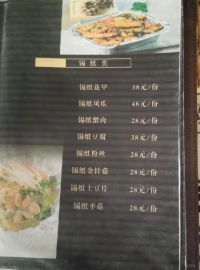 锡纸类
锡纸花甲 38元/份
锡纸凤瓜 48元/份
锡纸蟹肉 28元/份
锡纸豆腐 38元/份
锡纸粉丝 28元/份
锡纸金针菇 28元/份
锡纸土豆片 28元/份
锡纸平菇 28元/份